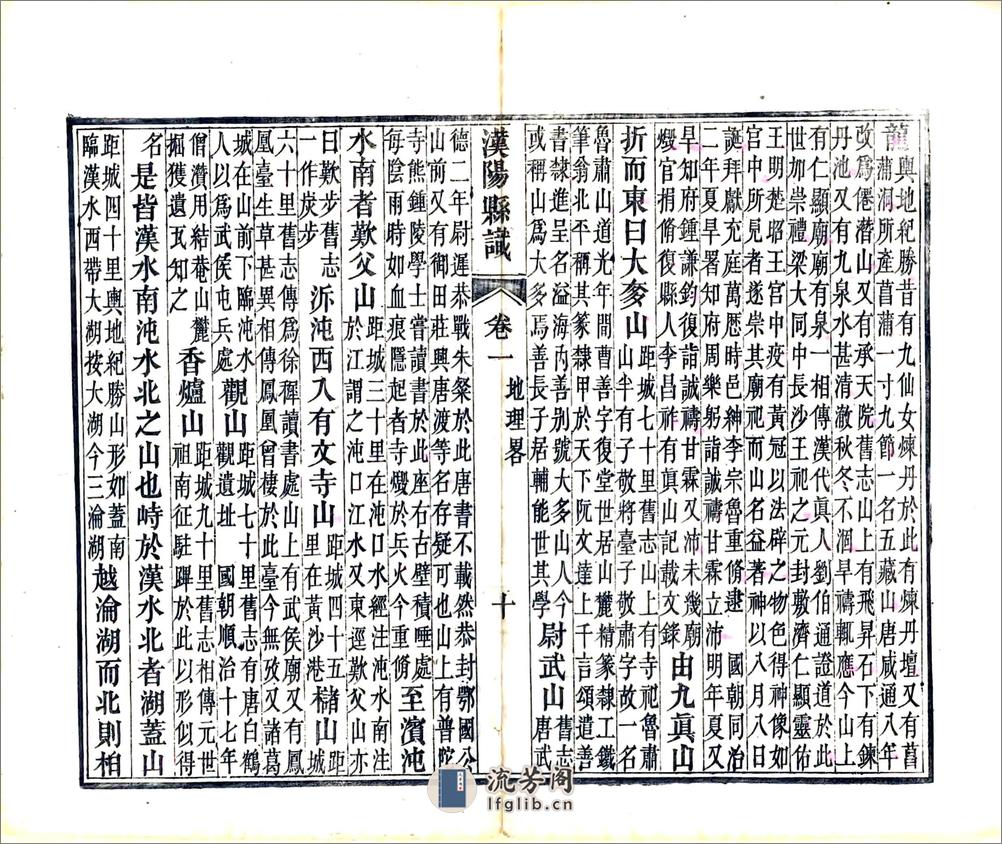 輿地紀勝昔有九仙女煉丹於此有煉丹壇又有菖
蒲澗所產菖蒲一寸九節一名五藏山唐咸通八年
改爲僊潛山又有承天院舊志山上有飛昇石下有鍊
丹池又有九泉水甚清澈秋冬不涸旱禱輒應今山上
有仁顯廟廟有泉一相傳漢代真人劉伯通證道於此
世加崇禮梁大同中長沙王祀之元封敷濟仁顯靈佑
王明楚昭王宮中疫有黃冠以法辟之物色得神像如
宮中所見者遂崇其廟祀而山名益著神以八月八日
誕拜獻充庭萬厯時邑紳李宗魯重脩逮　國朝同治
二年夏旱署知府周樂躬詣誠禱甘霖立沛明年夏又
旱知府鍾謙鈞復詣誠禱甘霖又沛未幾廟
燬官捐脩復縣人李昌祥有真山記載文錄
由九真山
折而東曰大夆山
距城七十里舊志山上有寺祀魯肅
山半有子敬將臺子敬肅字故一名
魯肅山道光年間曹善字復堂世居山麓精篆隸工鐵
筆翁北平稱其篆隸甲於天下阮文達上千言頌遣善
書隸進呈名溢海內善别號大多山人今
或稱山爲大多焉善長子居輔能世其學
尉武山
舊志
唐武
漢陽縣識　卷一　地理畧　十
德二年尉遲恭戰朱粲於此唐書不載然恭封鄂國公
山前又有御田莊興唐渡等名存疑可也山上有普陀
寺熊鍾陵學士嘗讀書於此座右古壁積唾處
每陰雨時如血痕隱起者寺燬於兵火今重脩
至濱沌
水南者歎父山
距城三十里在沌口水經注沌水南注
於江謂之沌口江水又東逕歎父山亦
曰歎步舊志
一作炭步
泝沌西入有文寺山
距城四十五
里在黃沙港
櫧山
距
城
六十里舊志傳爲徐穉讀書處山上有武侯廟又有鳳
凰臺生草甚異相傳鳳凰曾棲於此臺今無攷又諸葛
城在山前下臨沌水
人以爲武侯屯兵處
觀山
距城七十里舊志有唐白鶴
觀遺址　國朝順治十七年
僧濽用結菴山麓
掘獲遺瓦知之
香爐山
距城九十里舊志相傳元世
祖南征駐蹕於此以形似得
名
是皆漢水南沌水北之山也峙於漢水北者湖蓋山
距城四十里輿地紀勝山形如蓋南
臨漢水西帶大湖按大湖今三淪湖
越淪湖而北則相
流芳阁
lfglib.cn